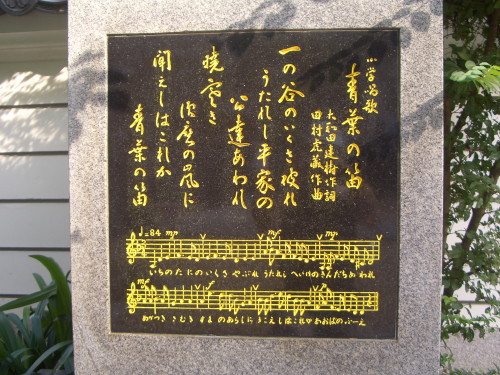 小学唱歌
青葉の笛
大和田建樹作詞
田村虎蔵作曲
一の谷のいくさ破れ
うたれし平家の
公達あわれ
暁寒き
須磨の嵐に
聞えしはこれか
青葉の笛
♩=84 mp mf mp
いちのたにのいくさ やぶれ うたれし へいけの きんだちあ われ
mf f mf
あかつき さむき すまの あらしに きこえし はこれか あおばのふーえ